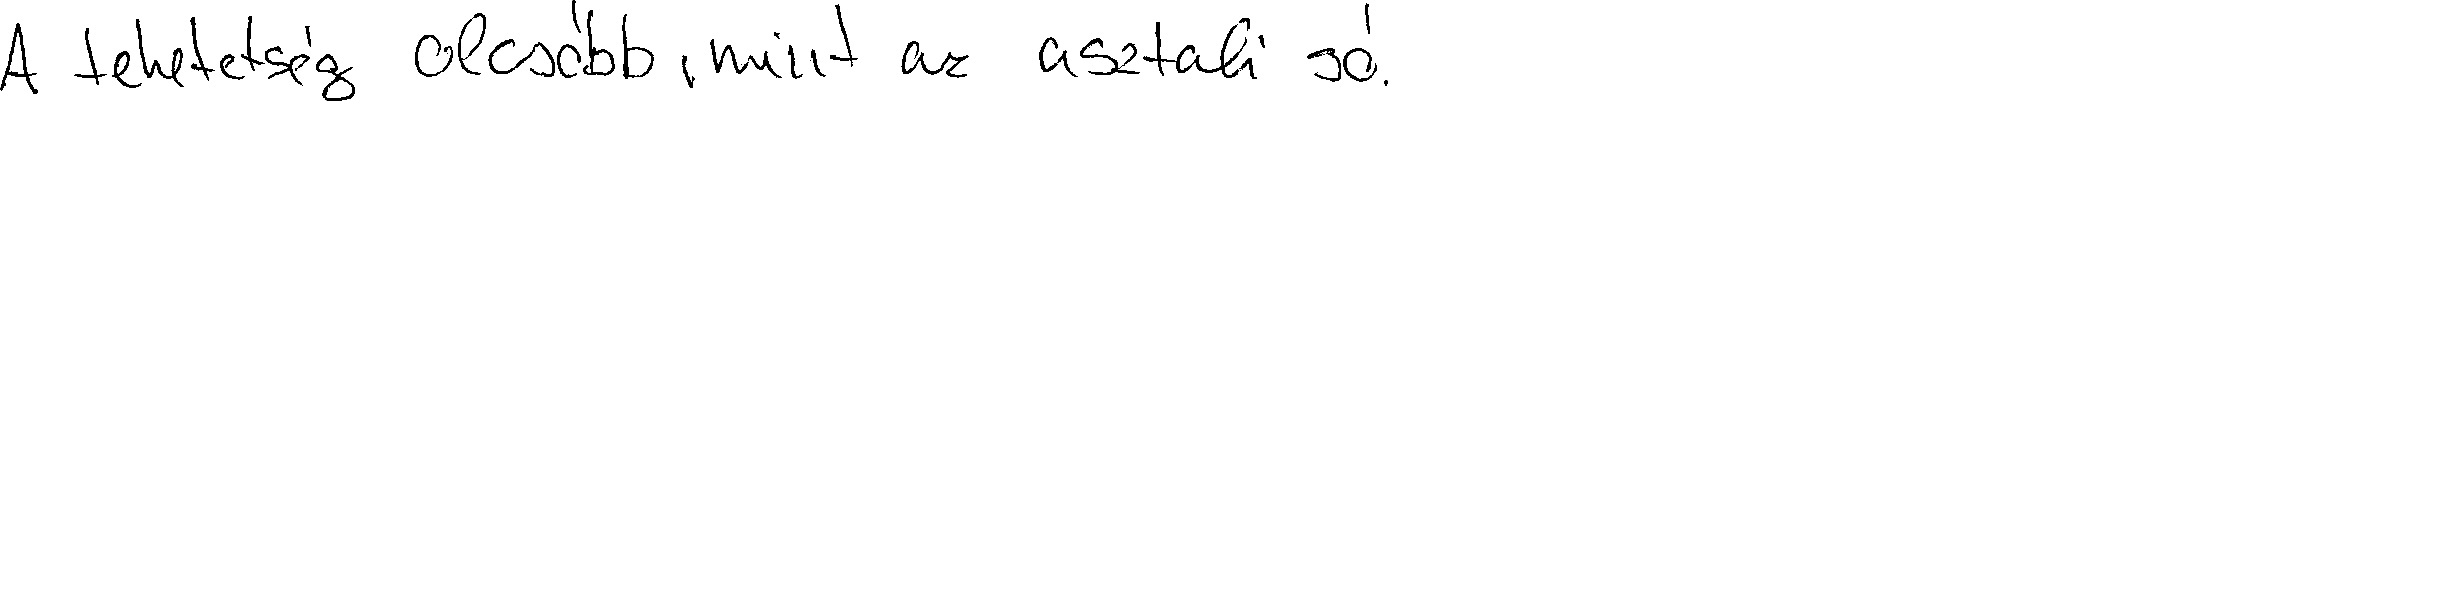 A tehetetség olcsóbb, mint az asztali só.